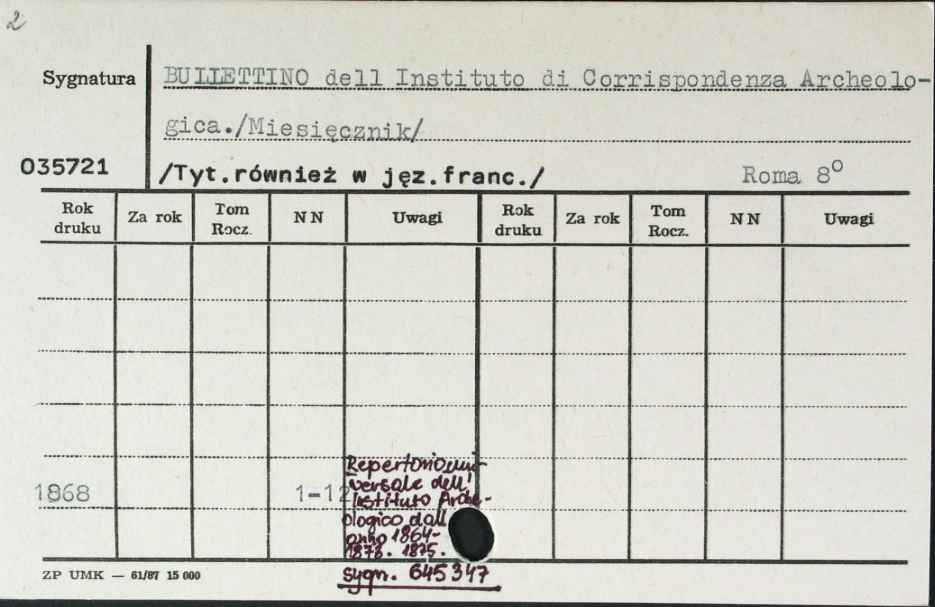 2
Sygnatura
BULLETTINO dell Instituto di Corrispondenza Archeolo-
gica./Miesięcznik/
035721
/Tyt.również w jęz.franc./
Roma 8o
Rok druku Za rok Tom Rocz. NN Uwagi Rok druku Za rok Tom Rocz. NN Uwagi
1868 1-12
Repertorio uni-
versale dell'
Instituto Arche-
ologico dall
anno 1864-
1873. 1875.
sygn. 645347
ZP UMK — 61/87 15 000